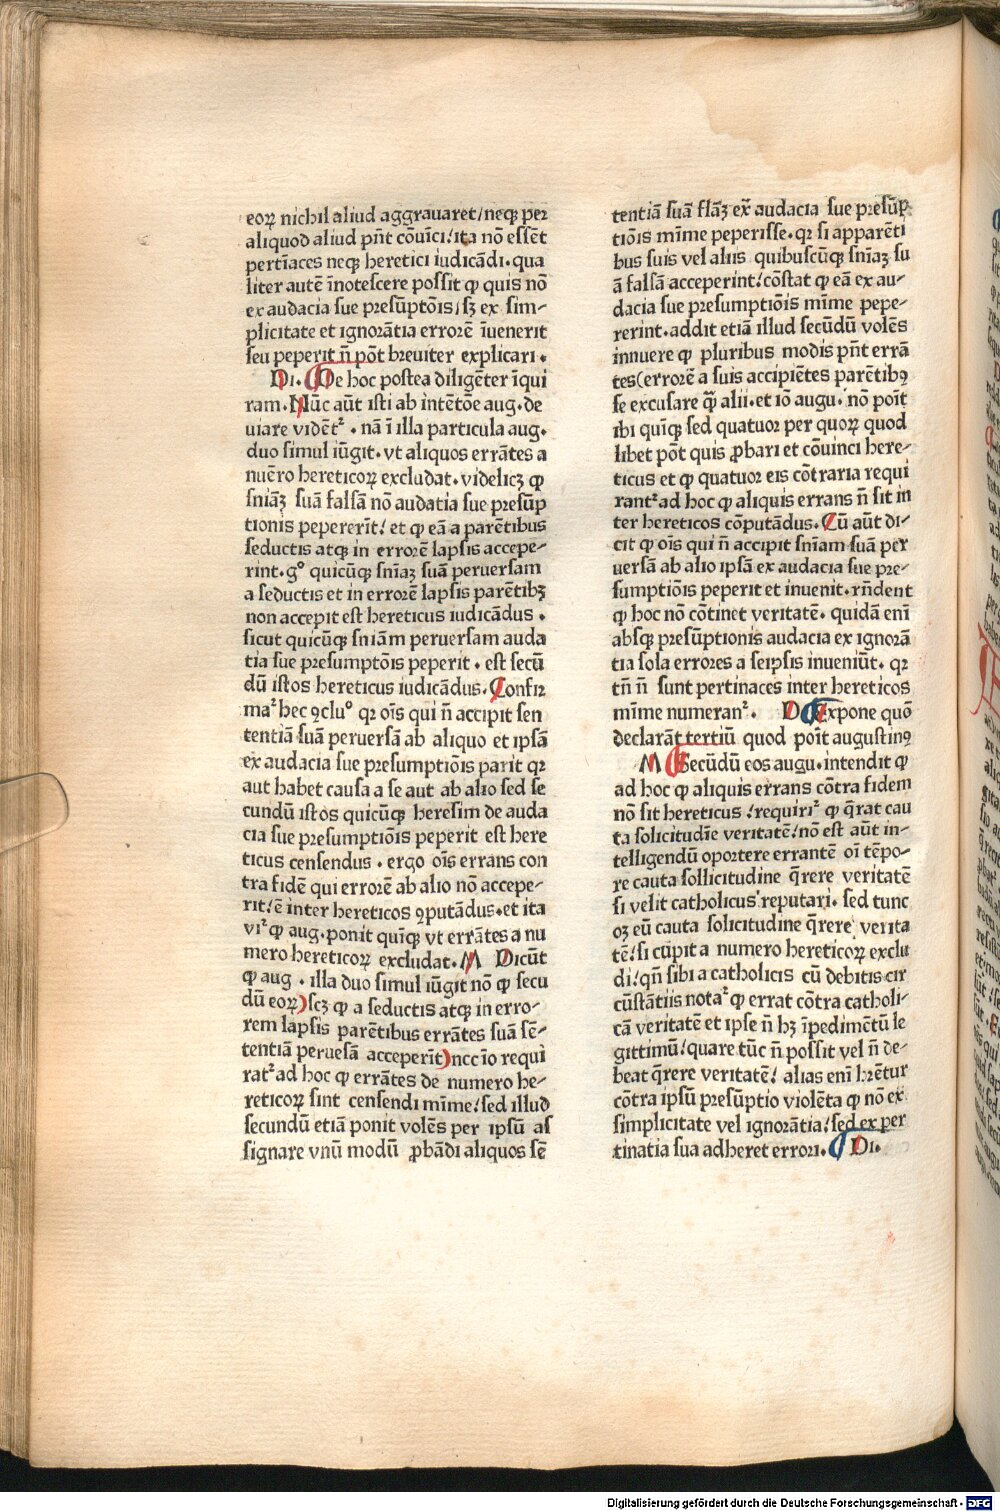 eoꝝ nichil aliud aggrauaret/neqꝫ per
aliquod aliud pn̄t cōuīci: ita nō essēt
pertīaces neqꝫ heretici iudicādi. qua
liter autē īnotescere possit ꝙ quis nō
ex audacia sue presūptōis/sꝫ ex sim-
plicitate et ignorātia errorē īuenerit
seu peperit n̄ pōt breuiter explicari.
Di. De hoc postea diligēter īqui
ram. Nūc aūt isti ab intētōe aug. de
uiare vidēt᷑. nā ī illa particula aug.
duo simul iūgit. vt aliquos errātes a
nuēro hereticoꝝ excludat. videlicꝫ ꝙ
sniāꝫ suā falsā nō audatia sue presūp
tionis pepererīt: et ꝙ eā a parētibus
seductis atqꝫ in errorē lapsis accepe-
rint. gº quicūqꝫ sniaꝫ suā peruersam
a seductis et in errorē lapsis parētibꝫ
non accepit est hereticus iudicādus.
sicut quicūqꝫ sniām peruersam auda
tia sue presumptōis peperit. est secū
dū istos hereticus iudicādus. Confir
ma᷑ hec ꝯcluº qꝛ oīs qui n̄ accipit sen
tentiā suā peruersā ab aliquo et ipsā
ex audacia sue presumptiōis parit qꝛ
aut habet causa a se aut ab alio sed se
cundū istos quicūqꝫ heresim de auda
cia sue presumptiōis peperit est here
ticus censendus. ergo oīs errans con
tra fidē qui errorē ab alio nō accepe-
rit: ē inter hereticos ꝯputādus. et ita
vi᷑ ꝙ aug. ponit quīqꝫ vt errātes a nu
mero hereticoꝝ excludat. M Dicūt
ꝙ aug. illa duo simul iūgit nō ꝙ secu
dū eoꝝ)scꝫ ꝙ a seductis atqꝫ in erro-
rem lapsis parētibus errātes suā sē-
tentiā peruesā acceperīt)ncc īo requi
rat᷑ ad hoc ꝙ errātes de numero he-
reticoꝝ sint censendi mīme: sed illud
secundū etiā ponit volēs per ipsū as
signare vnū modū ꝓbādi aliquos sē
tentiā suā flāꝫ ex̄ audacia sue presūp
tiōis mīme peperisse. qꝛ si apparēti
bus suis vel aliis quibuscūqꝫ sniaꝫ su
ā falsā acceperint: cōstat ꝙ eā ex au-
dacia sue presumptiōis mīme pepe-
rerint. addit etiā illud secūdū volēs
innuere ꝙ pluribus modis pn̄t errā
tes(errorē a suis accipiētes parētibꝰ
se excusare qͣ alii. et iō augu. nō poīt
ibi quīqꝫ sed quatuor per quoꝝ quod
libet pōt quis ꝓbari et cōuinci here-
ticus et ꝙ quatuor eis cōtraria requi
rant᷑ ad hoc ꝙ aliquis errans n̄ sit in
ter hereticos cōputādus. Cū aūt di-
cit ꝙ oīs qui n̄ accipit sniam suā per
uersā ab alio ipsā ex audacia sue pre-
sumptiōis peperit et inuenit. rn̄dent
ꝙ hoc nō cōtinet veritatē. quidā enī
absqꝫ presūptionis audacia ex ignorā
tia sola errores a seipsis inueniūt. qꝛ
tn̄ n̄ sunt pertinaces inter hereticos
mīme numeran᷑. D Expone quō
declarāt tertiū quod poīt augustinꝰ
M Secūdū eos augu. intendit ꝙ
ad hoc ꝙ aliquis errans cōtra fidem
nō sit hereticus: requiri᷑ ꝙ q̄rat cau
ta solicitudīe veritatē: nō est aūt in-
telligendū oportere errantē oī tēpo-
re cauta sollicitudine q̄rere veritatē
si velit catholicus reputari. sed tunc
oꝫ eū cauta solicitudine q̄rere verita
tē: si cupit a numero hereticoꝝ exclu
di: qn̄ sibi a catholicis cū debitis cir
cūstātiis nota᷑ ꝙ errat cōtra catholi-
cā veritatē et ipse n̄ hꝫ īpedimētū le
gittimū: quare tūc n̄ possit vel n̄ de-
beat q̄rere veritatē: alias enī hr̄etur
cōtra ipsū presūptio violēta ꝙ nō ex
simplicitate vel ignorātia: sed ex per
tinatia sua adheret errori. Di.
Digitalisierung gefördert durch die Deutsche Forschungsgemeinschaft - DFG